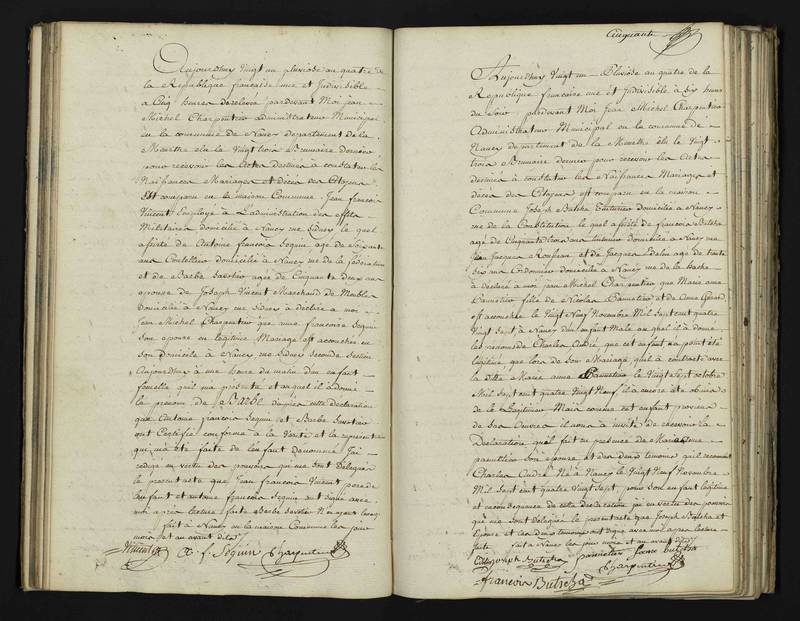 Aujourdhuy Vingt un pluviose au quatre de
la Republique française une et Indivisible
a Cinq heures de relevée pardevant Moi jean
Michel Charpentier administrateur Municipal
de la commune de Nancy departement de la
Meurthe élu le Vingt trois Brumaire dernier
pour recevoir les Actes destinés a constater les
Naissances Mariages et décès des Citoyens
Est comparu en la maison Commune Jean francois
Vincent Employé a L'administration des effets
Militaires domicilié à Nancy rue lequel
assisté de Antoine francois Sequin agé de Soixante
ans Coutellier domicilié a Nancy rue de la fédération
et de Barbe agée de Cinquante Deux ans
epouse de Joseph Vincent Marchand de Meubles
domicilié a Nancy rue a déclaré a moi
Jean Michel Charpentier que anne françoise Sequin
son epouse en legitime Mariage est accouchée en
son domicile a Nancy rue seconde Section
Aujourdhuy a une heure du matin d'un enfant
femelle qui ma présenté et auquel il a donné
le prénom de Barbe d'après cette declaration
que Antoine francois Sequin et Barbe
ont Certifié conforme à la Verité et la représentation
qui m'a été faite de l'enfant denommé J'ai
redigé en vertu des pouvoirs qui me sont délégués
le present acte que Jean francois Vincent pere de
l'enfant et antoine francois Sequin ont signé avec
moi après lecture faite Barbe
fait à Nancy en la maison Commune les jour
mois et an avant dits
Vincent A. f. Sequin Charpentier
Cinquante
Aujourdhuy Vingt un Pluviose au quatre de la
Republique francaise une et Indivisible à Six heures
du Soir pardevant Moi Jean Michel Charpentier
administrateur Municipal de la commune de
Nancy departement de la Meurthe élu le Vingt
trois Brumaire dernier pour recevoir les Actes
destinés a constater les Naissances Mariages et
décès des Citoyens est comparu en la maison
Commune Joseph domicilié a Nancy
rue de la Constitution lequel assisté de francois
agé de Cinquante trois ans domicilié a Nancy rue
Jean Jacques Rousseau et de Jacques agé de trente
Six ans Cordonnier domicilié a Nancy rue de la
a déclaré a moi jean Michel Charpentier que Marie anne
fille de Nicolas et de Anne Gerard
est accouchée le Vingt Neuf Novembre Mil Sept cent quatre
Vingt Sept a Nancy d'un enfant Male auquel il a donné
les prenoms de Charles André que cet enfant n'a point été
legitimé que lors de son Mariage qu'il a contracté avec
la ditte Marie anne le Vingt Sept octobre
Mil Sept cent quatre Vingt Neuf il a encore été obmis
de le legitimer Mais comme cet enfant provien
de ses Oeuvres il nous a invité de recevoir la
Declaration qu'il fait en presence de Marie anne
son épouse et des deux temoins qu'il reconnoit
Charles André Né à Nancy le Vingt Neuf Novembre
Mil Sept cent quatre Vingt Sept pour son enfant legitime
et en consequence de cette declaration j'ai en vertu des pouvoirs
qui me sont délégués le present acte que Joseph
Epouse et les deux temoins ont signé avec moi après lecture
faite fait a Nancy les jour mois et an avant dits
Joseph
francois Charpentier